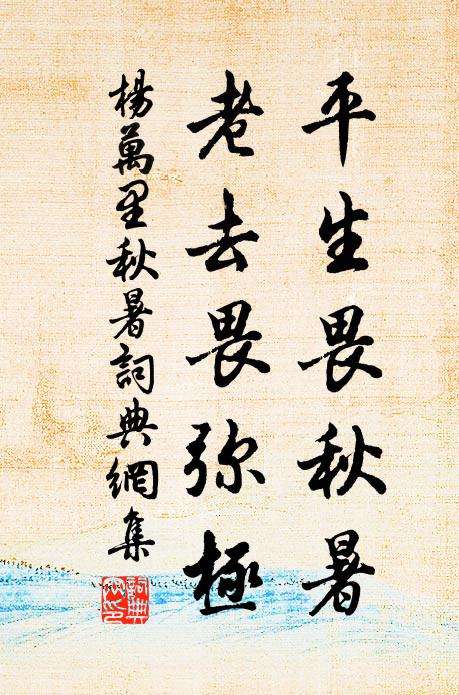 平生畏秋暑
老去畏弥極
楊萬里秋暑詞典網集